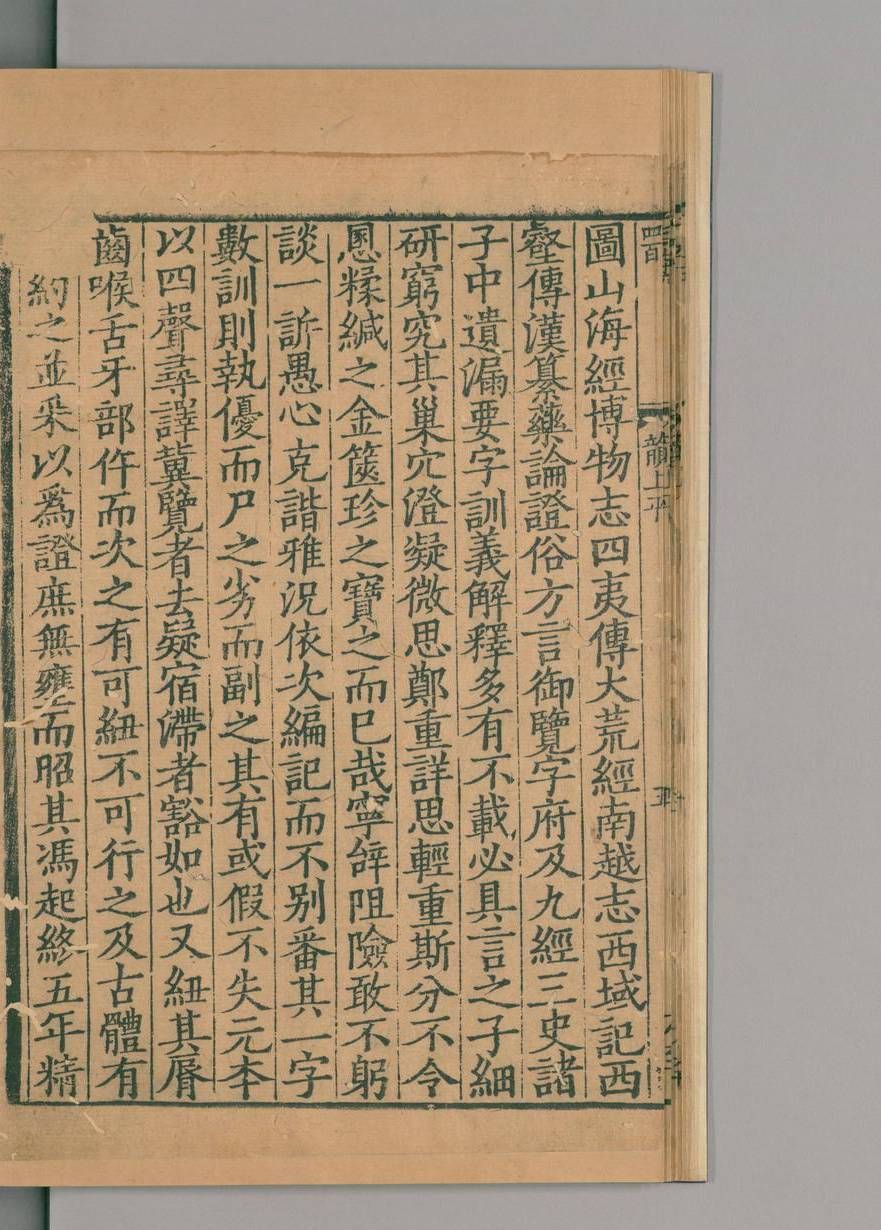 韻上平
圖山海經博物志四夷傳大荒經南越志西域記西
壑傳漢纂藥論證俗方言御覽字府及九經三史諸
子中遺漏要字訓義解釋多有不載必具言之子細
研窮究其巢穴澄凝微思鄭重詳思輕重斯分不令
慁糅緘之金篋珍之寶之而已哉寧辝阻險敢不躬
談一訴愚心克諧雅況依次編記而不别番其一字
數訓則執優而尸之劣而副之其有或假不失元本
以四聲尋譯冀覽者去疑宿滯者豁如也又紐其脣
齒喉舌牙部仵而次之有可紐不可行之及古體有
約之並采以爲證庶無壅而昭其馮起終五年精